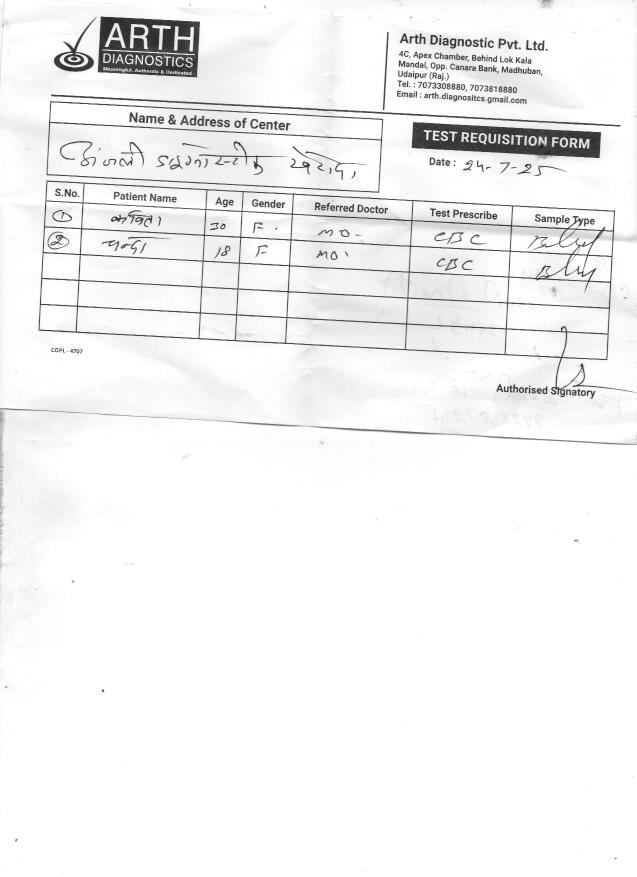 ARTH
DIAGNOSTICS
Meaningful, Authentic & Dedicated
Arth Diagnostic Pvt. Ltd.
4C, Apex Chamber, Behind Lok Kala
Mandal, Opp. Canara Bank, Madhuban,
Udaipur (Raj.)
Tel. : 7073308880, 7073818880
Email : arth.diagnositcs.gmail.com
Name & Address of Center
अंजली डायग्नोस्टीक खेरवाड़ा
TEST REQUISITION FORM
Date : 24-7-25
S.No. Patient Name Age Gender Referred Doctor Test Prescribe Sample Type
1 कविता 30 F. MO- CBC
2 चन्दा 18 F MO' CBC
CDPL - 4707
Authorised Signatory